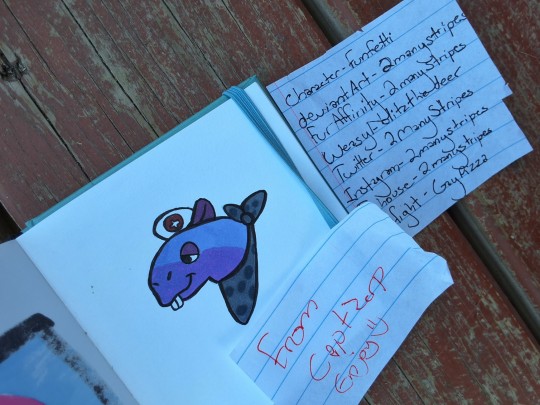 Character - Funfetti
deviantArt - 2manystripes
Fur Affinity - 2manystripes
Weasyl - blitzthedeer
Twitter - 2manystripes
Instagram - 2manystripes
house - 2manystripes
fight - GayPizza
From
Enjoy!!